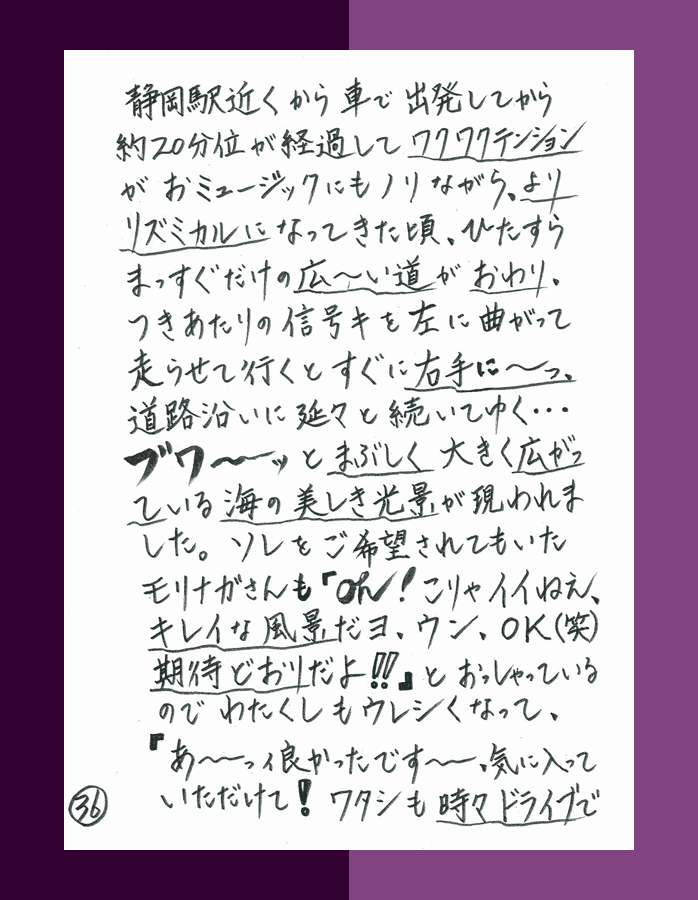 静岡駅近くから車で出発してから
約20分位が経過してワクワクテンション
がおミュージックにもノリながら、より
リズミカルになってきた頃、ひたすら
まっすぐだけの広〜い道がおわり、
つきあたりの信号キを左に曲がって
走らせて行くとすぐに右手に〜っ、
道路沿いに延々と続いてゆく・・・
ブワ〜〜ッとまぶしく大きく広がっ
ている海の美しき光景が現われま
した。ソレをご希望されてもいた
モリナガさんも『Oh！こりゃイイねえ、
キレイな風景だヨ、ウン、OK(笑)
期待どおりだよ!!』とおっしゃっている
のでわたくしもウレシくなって、
『あ〜〜っィ良かったです〜〜、気に入って
いただけて！ワタシも時々ドライブで
36